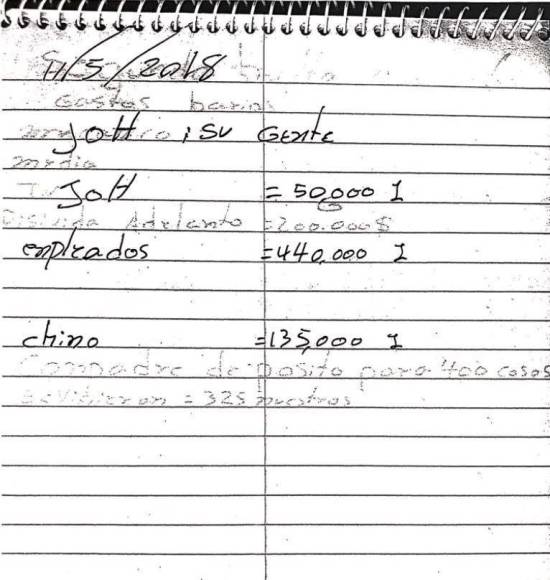 11/5/2018
Gastos barios
JOH i SU GENTE
media
JOH = 50,000 I
Adelanto = 200.000$
enpleados = 440.000 I
chino = 135,000 I
Comadre deposito para 400 cosas
= 325 nuestros